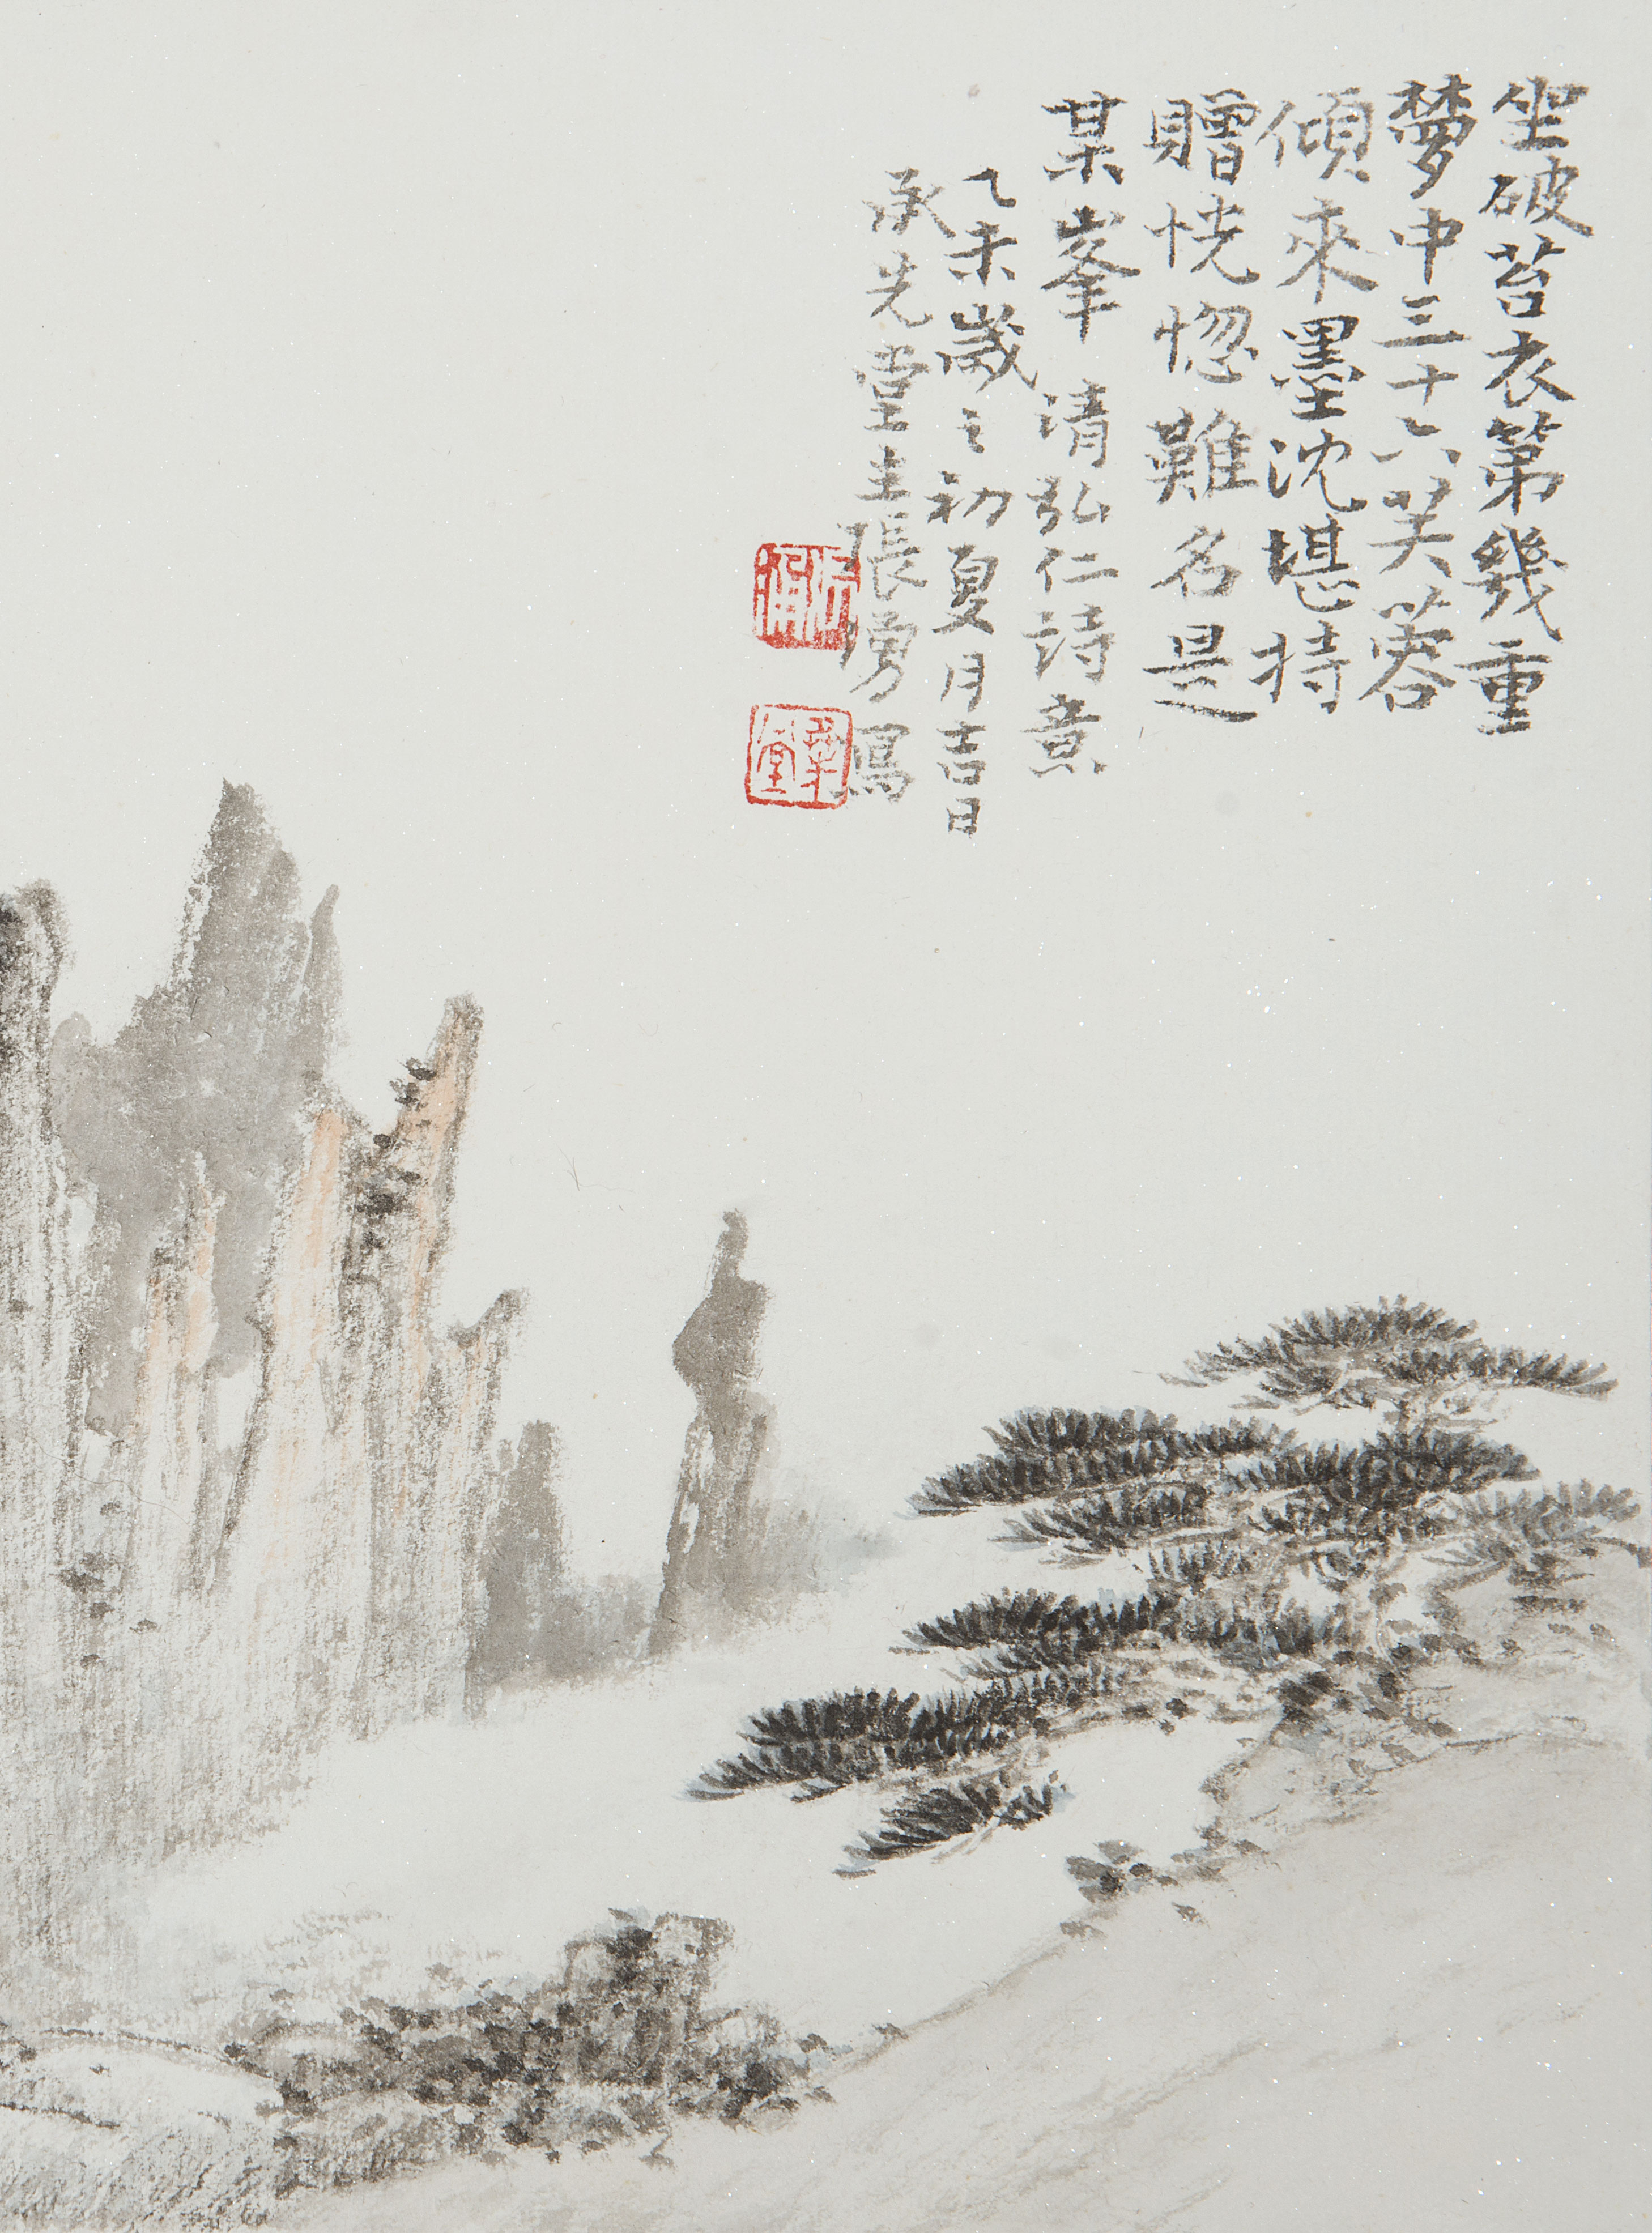 坐破苔衣第幾重
夢中三十六芙蓉
傾來墨沈堪持
贈恍惚難名是
某峯 清弘仁詩意
乙未歲之初夏月吉日
承先堂主張勇寫